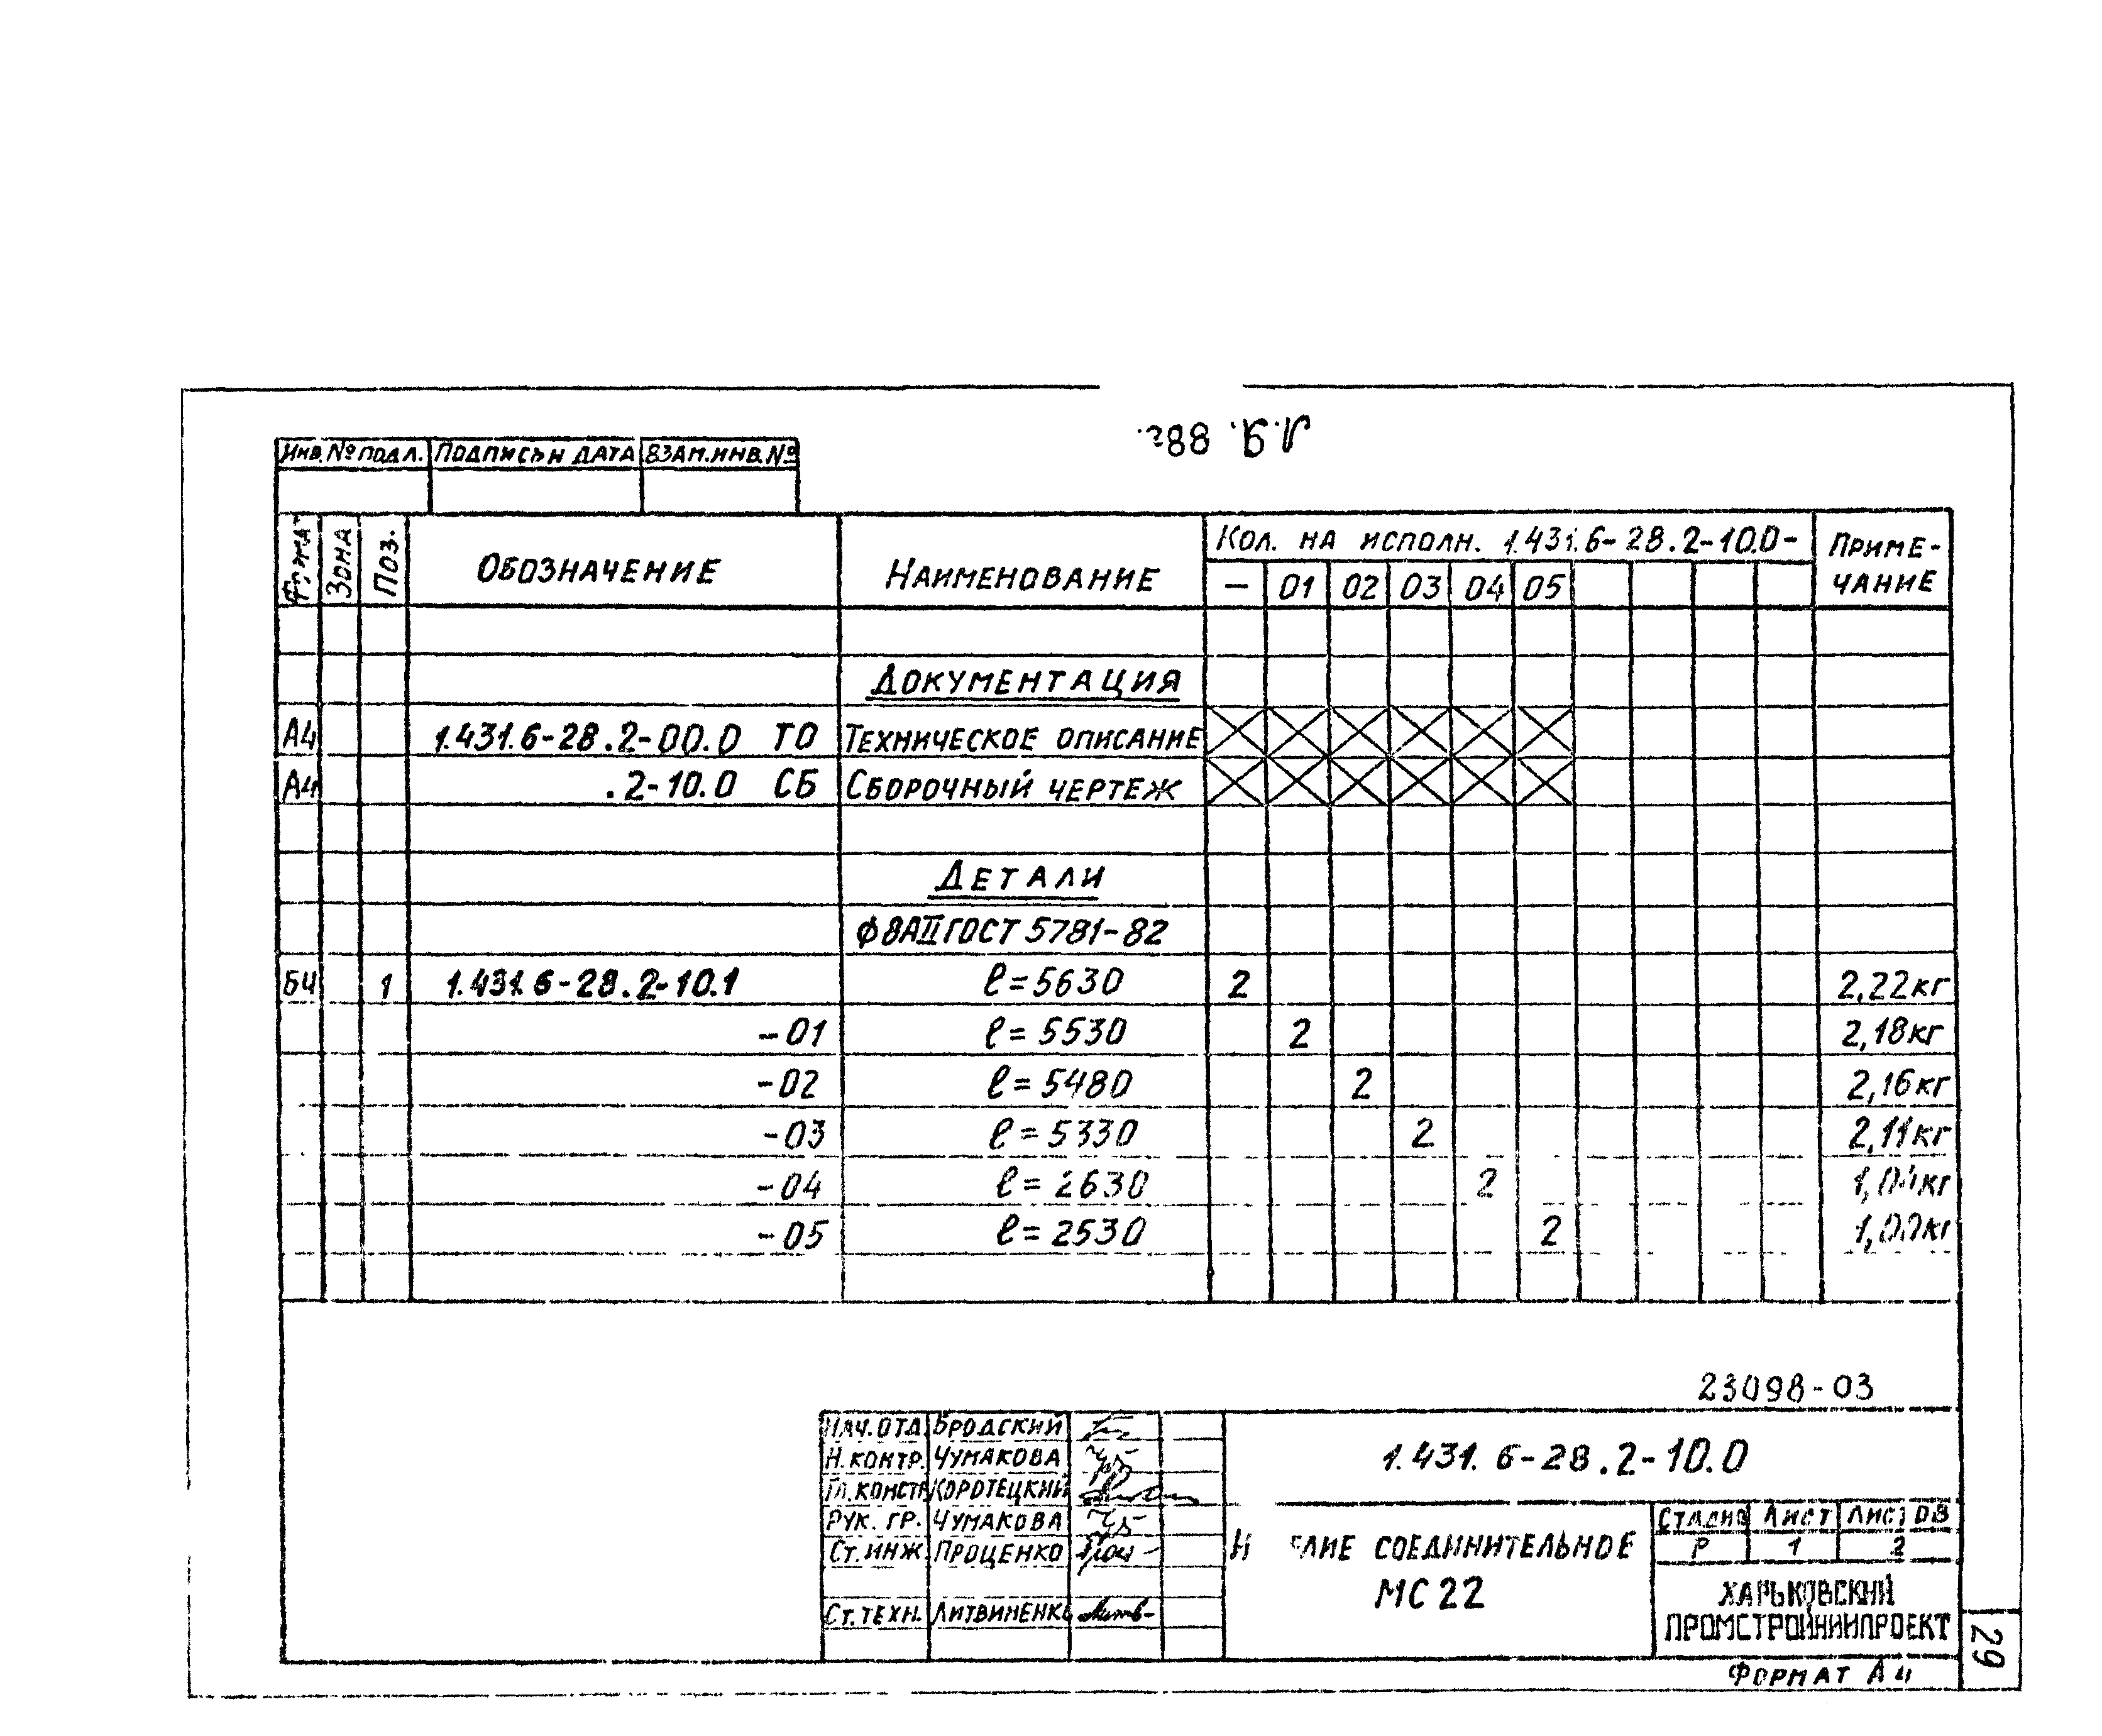 Л.Я. 88г.
Инв. № подл. Подпись и дата Взам. инв. №
Формат Зона Поз. Обозначение Наименование Кол. на исполн. 1.431.6-28.2-10.0- Приме-
чание
— 01 02 03 04 05
Документация
А4 1.431.6-28.2-00.0 ТО Техническое описание
А4 .2-10.0 СБ Сборочный чертеж
Детали
ф8АII ГОСТ 5781-82
БЧ 1 1.431.6-28.2-10.1 ℓ=5630 2 2,22кг
-01 ℓ=5530 2 2,18кг
-02 ℓ=5480 2 2,16кг
-03 ℓ=5330 2 2,11кг
-04 ℓ=2630 2 1,04кг
-05 ℓ=2530 2
23098-03
Нач. отд. Бродский
Н. контр. Чумакова
Гл. констр. Коротецкий
Рук. гр. Чумакова
Ст. инж. Проценко
Ст. техн. Литвиненко
1.431.6-28.2-10.0
Изделие соединительное
МС 22
Стадия Лист Листов
Р 1 2
Харьковский
Промстройниипроект
Формат А4
29